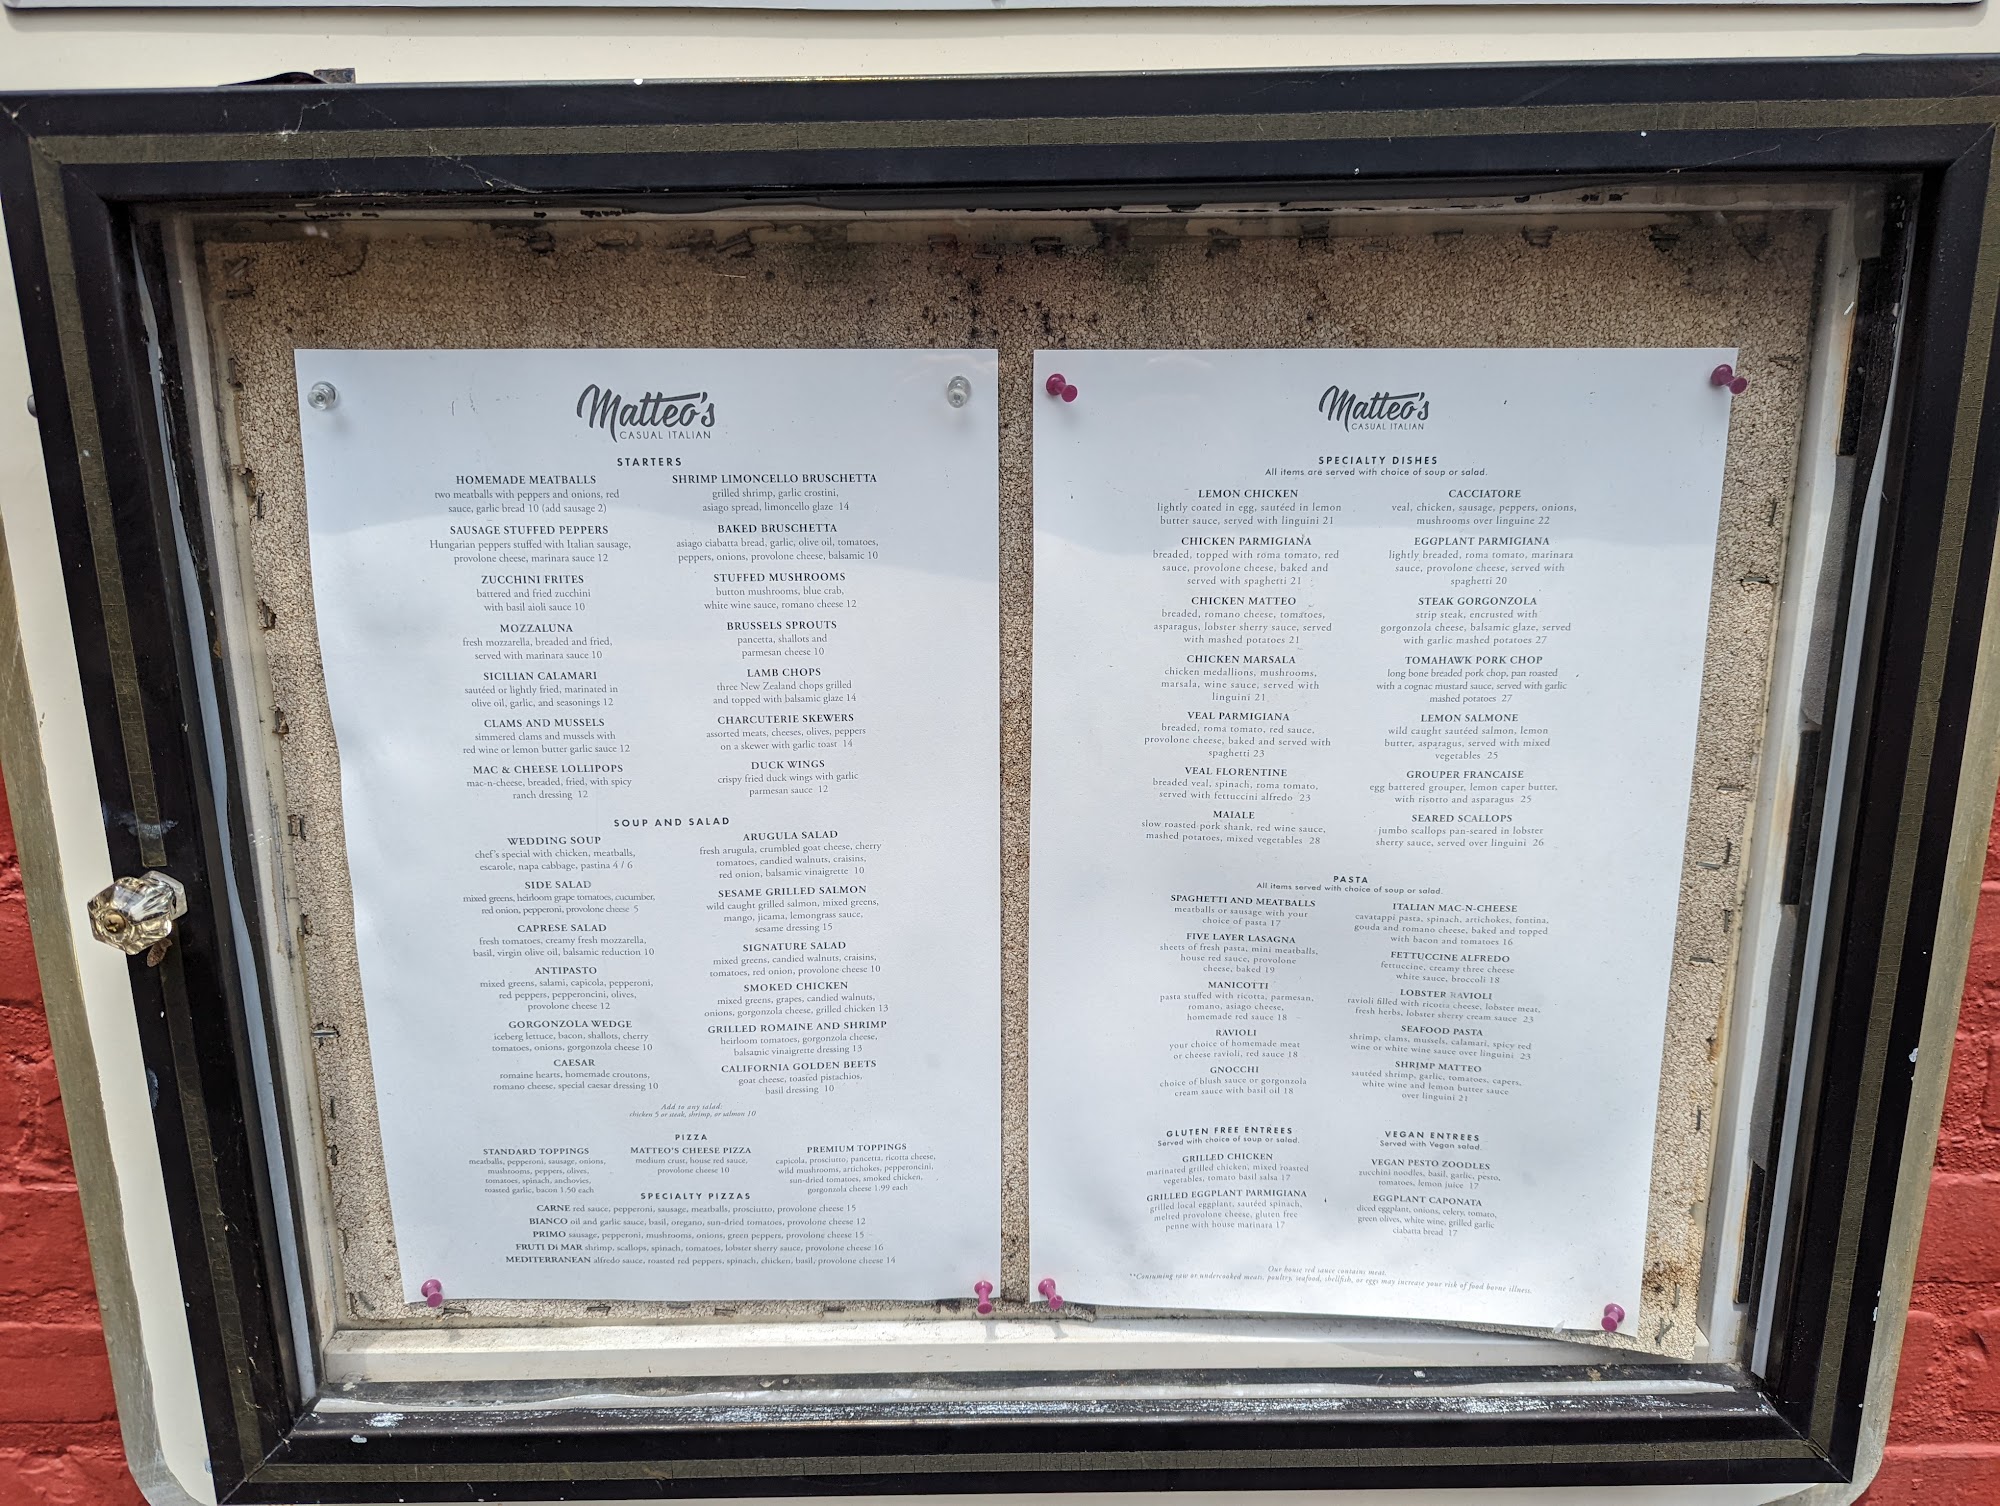 Matteo's
CASUAL ITALIAN
STARTERS
HOMEMADE MEATBALLS
two meatballs with peppers and onions, red
sauce, garlic bread 10 (add sausage 2)
SAUSAGE STUFFED PEPPERS
Hungarian peppers stuffed with Italian sausage,
provolone cheese, marinara sauce 12
ZUCCHINI FRITES
battered and fried zucchini
with basil aioli sauce 10
MOZZALUNA
fresh mozzarella, breaded and fried,
served with marinara sauce 10
SICILIAN CALAMARI
sautéed or lightly fried, marinated in
olive oil, garlic, and seasonings 12
CLAMS AND MUSSELS
simmered clams and mussels with
red wine or lemon butter garlic sauce 12
MAC & CHEESE LOLLIPOPS
mac-n-cheese, breaded, fried, with spicy
ranch dressing 12
SHRIMP LIMONCELLO BRUSCHETTA
grilled shrimp, garlic crostini,
asiago spread, limoncello glaze 14
BAKED BRUSCHETTA
asiago ciabatta bread, garlic, olive oil, tomatoes,
peppers, onions, provolone cheese, balsamic 10
STUFFED MUSHROOMS
button mushrooms, blue crab,
white wine sauce, romano cheese 12
BRUSSELS SPROUTS
pancetta, shallots and
parmesan cheese 10
LAMB CHOPS
three New Zealand chops grilled
and topped with balsamic glaze 14
CHARCUTERIE SKEWERS
assorted meats, cheeses, olives, peppers
on a skewer with garlic toast 14
DUCK WINGS
crispy fried duck wings with garlic
parmesan sauce 12
SOUP AND SALAD
WEDDING SOUP
chef's special with chicken, meatballs,
escarole, napa cabbage, pastina 4 / 6
SIDE SALAD
mixed greens, heirloom grape tomatoes, cucumber,
red onion, pepperoni, provolone cheese 5
CAPRESE SALAD
fresh tomatoes, creamy fresh mozzarella,
basil, virgin olive oil, balsamic reduction 10
ANTIPASTO
mixed greens, salami, capicola, pepperoni,
red peppers, pepperoncini, olives,
provolone cheese 12
GORGONZOLA WEDGE
iceberg lettuce, bacon, shallots, cherry
tomatoes, onions, gorgonzola cheese 10
CAESAR
romaine hearts, homemade croutons,
romano cheese, special caesar dressing 10
ARUGULA SALAD
fresh arugula, crumbled goat cheese, cherry
tomatoes, candied walnuts, craisins,
red onion, balsamic vinaigrette 10
SESAME GRILLED SALMON
wild caught grilled salmon, mixed greens,
mango, jicama, lemongrass sauce,
sesame dressing 15
SIGNATURE SALAD
mixed greens, candied walnuts, craisins,
tomatoes, red onion, provolone cheese 10
SMOKED CHICKEN
mixed greens, grapes, candied walnuts,
onions, gorgonzola cheese, grilled chicken 13
GRILLED ROMAINE AND SHRIMP
heirloom tomatoes, gorgonzola cheese,
balsamic vinaigrette dressing 13
CALIFORNIA GOLDEN BEETS
goat cheese, toasted pistachios,
basil dressing 10
Add to any salad:
chicken 5 or steak, shrimp, or salmon 10
PIZZA
STANDARD TOPPINGS
meatballs, pepperoni, sausage, onions,
mushrooms, peppers, olives,
tomatoes, spinach, anchovies,
roasted garlic, bacon 1.50 each
MATTEO'S CHEESE PIZZA
medium crust, house red sauce,
provolone cheese 10
PREMIUM TOPPINGS
capicola, prosciutto, pancetta, ricotta cheese,
wild mushrooms, artichokes, pepperoncini,
sun-dried tomatoes, smoked chicken,
gorgonzola cheese 1.99 each
SPECIALTY PIZZAS
CARNE red sauce, pepperoni, sausage, meatballs, prosciutto, provolone cheese 15
BIANCO oil and garlic sauce, basil, oregano, sun-dried tomatoes, provolone cheese 12
PRIMO sausage, pepperoni, mushrooms, onions, green peppers, provolone cheese 15
FRUTI Di MAR shrimp, scallops, spinach, tomatoes, lobster sherry sauce, provolone cheese 16
MEDITERRANEAN alfredo sauce, roasted red peppers, spinach, chicken, basil, provolone cheese 14
Matteo's
CASUAL ITALIAN
SPECIALTY DISHES
All items are served with choice of soup or salad.
LEMON CHICKEN
lightly coated in egg, sautéed in lemon
butter sauce, served with linguini 21
CHICKEN PARMIGIANA
breaded, topped with roma tomato, red
sauce, provolone cheese, baked and
served with spaghetti 21
CHICKEN MATTEO
breaded, romano cheese, tomatoes,
asparagus, lobster sherry sauce, served
with mashed potatoes 21
CHICKEN MARSALA
chicken medallions, mushrooms,
marsala, wine sauce, served with
linguini 21
VEAL PARMIGIANA
breaded, roma tomato, red sauce,
provolone cheese, baked and served with
spaghetti 23
VEAL FLORENTINE
breaded veal, spinach, roma tomato,
served with fettuccini alfredo 23
MAIALE
slow roasted pork shank, red wine sauce,
mashed potatoes, mixed vegetables 28
CACCIATORE
veal, chicken, sausage, peppers, onions,
mushrooms over linguine 22
EGGPLANT PARMIGIANA
lightly breaded, roma tomato, marinara
sauce, provolone cheese, served with
spaghetti 20
STEAK GORGONZOLA
strip steak, encrusted with
gorgonzola cheese, balsamic glaze, served
with garlic mashed potatoes 27
TOMAHAWK PORK CHOP
long bone breaded pork chop, pan roasted
with a cognac mustard sauce, served with garlic
mashed potatoes 27
LEMON SALMONE
wild caught sautéed salmon, lemon
butter, asparagus, served with mixed
vegetables 25
GROUPER FRANCAISE
egg battered grouper, lemon caper butter,
with risotto and asparagus 25
SEARED SCALLOPS
jumbo scallops pan-seared in lobster
sherry sauce, served over linguini 26
PASTA
All items served with choice of soup or salad.
SPAGHETTI AND MEATBALLS
meatballs or sausage with your
choice of pasta 17
FIVE LAYER LASAGNA
sheets of fresh pasta, mini meatballs,
house red sauce, provolone
cheese, baked 19
MANICOTTI
pasta stuffed with ricotta, parmesan,
romano, asiago cheese,
homemade red sauce 18
RAVIOLI
your choice of homemade meat
or cheese ravioli, red sauce 18
GNOCCHI
choice of blush sauce or gorgonzola
cream sauce with basil oil 18
ITALIAN MAC-N-CHEESE
cavatappi pasta, spinach, artichokes, fontina,
gouda and romano cheese, baked and topped
with bacon and tomatoes 16
FETTUCCINE ALFREDO
fettuccine, creamy three cheese
white sauce, broccoli 18
LOBSTER RAVIOLI
ravioli filled with ricotta cheese, lobster meat,
fresh herbs, lobster sherry cream sauce 23
SEAFOOD PASTA
shrimp, clams, mussels, calamari, spicy red
wine or white wine sauce over linguini 23
SHRIMP MATTEO
sautéed shrimp, garlic, tomatoes, capers,
white wine and lemon butter sauce
over linguini 21
GLUTEN FREE ENTREES
Served with choice of soup or salad.
GRILLED CHICKEN
marinated grilled chicken, mixed roasted
vegetables, tomato basil salsa 17
GRILLED EGGPLANT PARMIGIANA
grilled local eggplant, sautéed spinach,
melted provolone cheese, gluten free
penne with house marinara 17
VEGAN ENTREES
Served with Vegan salad.
VEGAN PESTO ZOODLES
zucchini noodles, basil, garlic, pesto,
tomatoes, lemon juice 17
EGGPLANT CAPONATA
diced eggplant, onions, celery, tomato,
green olives, white wine, grilled garlic
ciabatta bread 17
Our house red sauce contains meat.
**Consuming raw or undercooked meats, poultry, seafood, shellfish, or eggs may increase your risk of food borne illness.